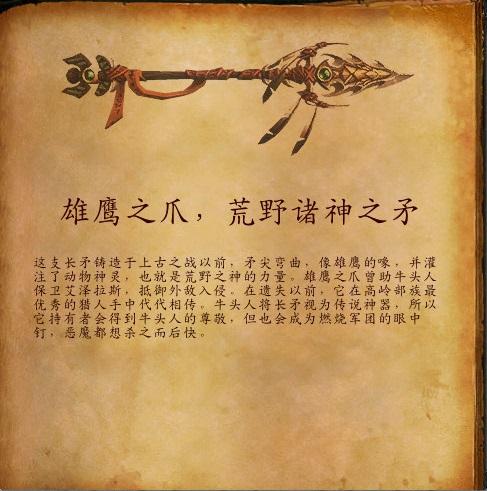 雄鹰之爪，荒野诸神之矛
这支长矛铸造于上古之战以前，矛尖弯曲，像雄鹰的喙，并灌
注了动物神灵，也就是荒野之神的力量。雄鹰之爪曾助牛头人
保卫艾泽拉斯，抵御外敌入侵。在遗失以前，它在高岭部族最
优秀的猎人手中代代相传。牛头人将长矛视为传说神器，所以
它持有者会得到牛头人的尊敬，但也会成为燃烧军团的眼中
钉，恶魔都想杀之而后快。